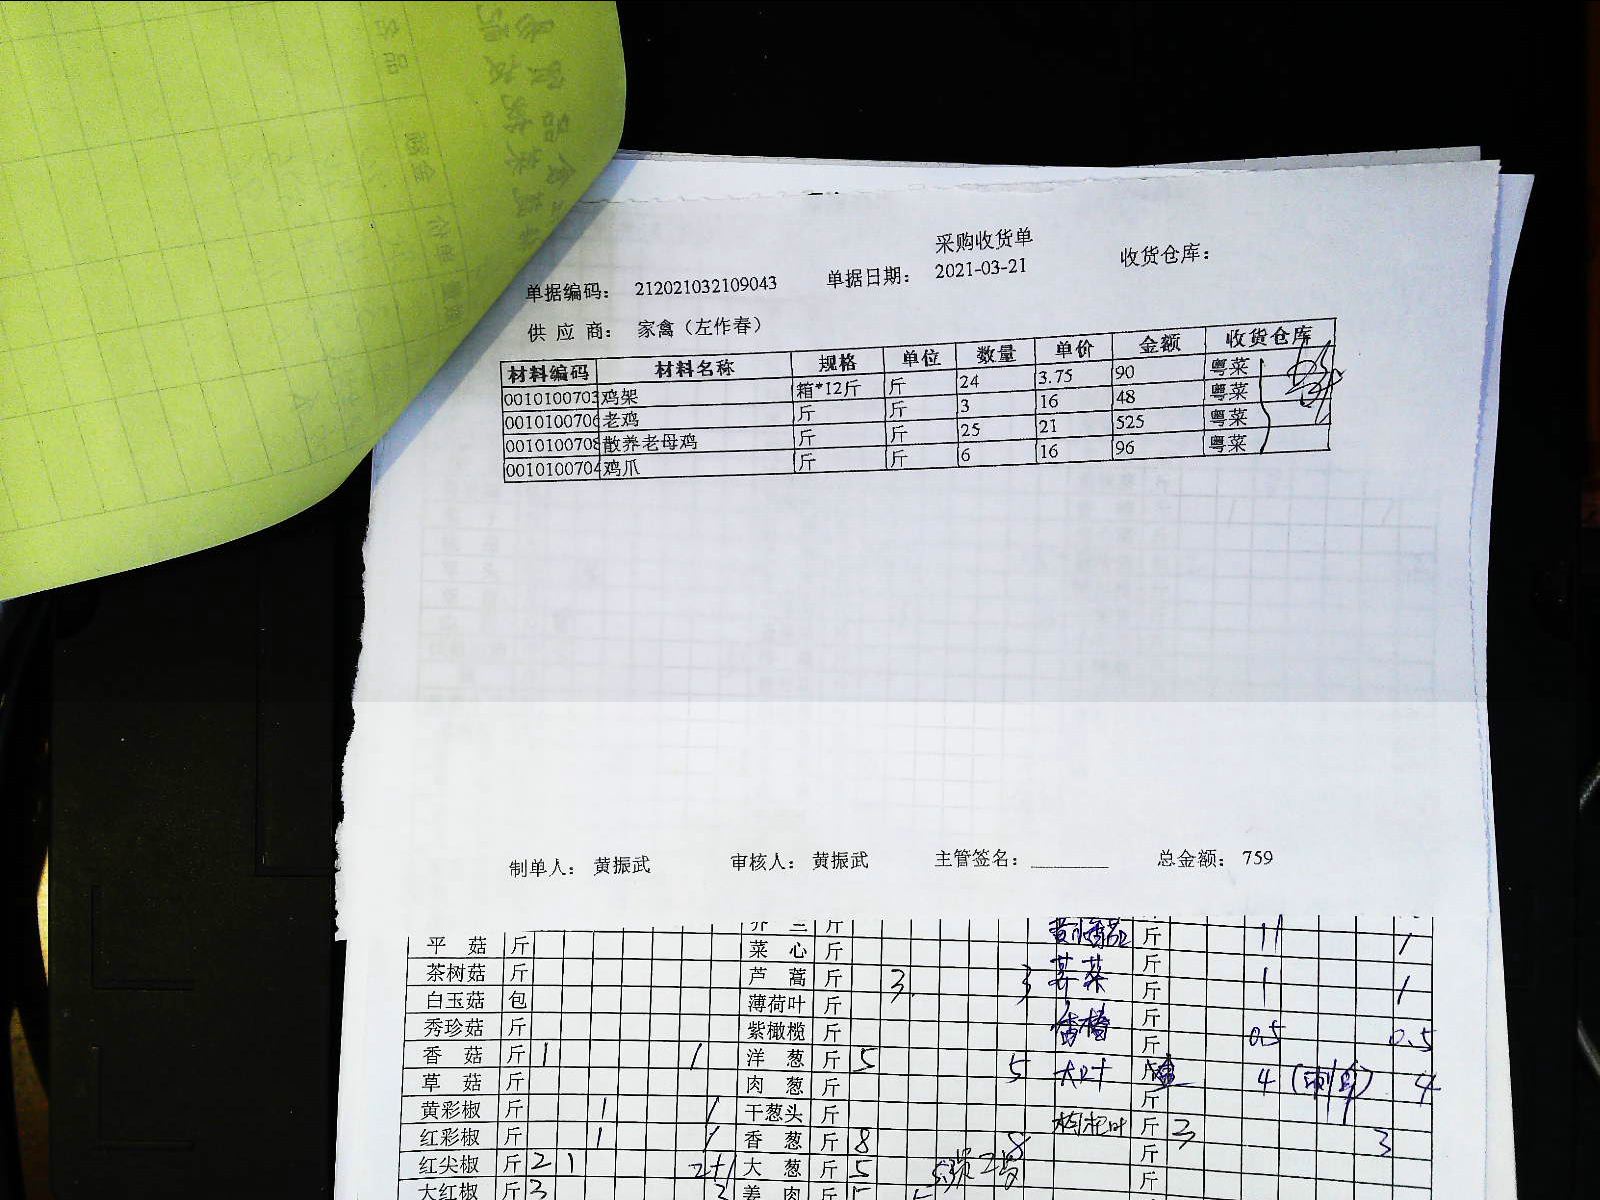 采购收货单
单据编码： 212021032109043 单据日期： 2021-03-21 收货仓库：
供 应 商： 家禽（左作春）
材料编码 材料名称 规格 单位 数量 单价 金额 收货仓库
0010100703 鸡架 箱*12斤 斤 24 3.75 90 粤菜
0010100706 老鸡 斤 斤 3 16 48 粤菜
0010100708 散养老母鸡 斤 斤 25 21 525 粤菜
0010100704 鸡爪 斤 斤 6 16 96 粤菜
制单人： 黄振武 审核人： 黄振武 主管签名： 总金额： 759
斤 斤
平 菇 斤 菜 心 斤 斤 1
茶树菇 斤 芦 蒿 斤 3 3 斤 1 1
白玉菇 包 薄荷叶 斤 斤
秀珍菇 斤 紫橄榄 斤 香椿 斤 0.5 0.5
香 菇 斤 1 1 洋 葱 斤 5 5 大叶 斤 4 4
草 菇 斤 肉 葱 斤 斤
黄彩椒 斤 1 1 干葱头 斤 枸杞叶 斤 3 3
红彩椒 斤 1 1 香 葱 斤 8 8 斤
红尖椒 斤 2 1 2+1 大 葱 斤 5 斤
大红椒 斤 3 3 姜 肉 斤